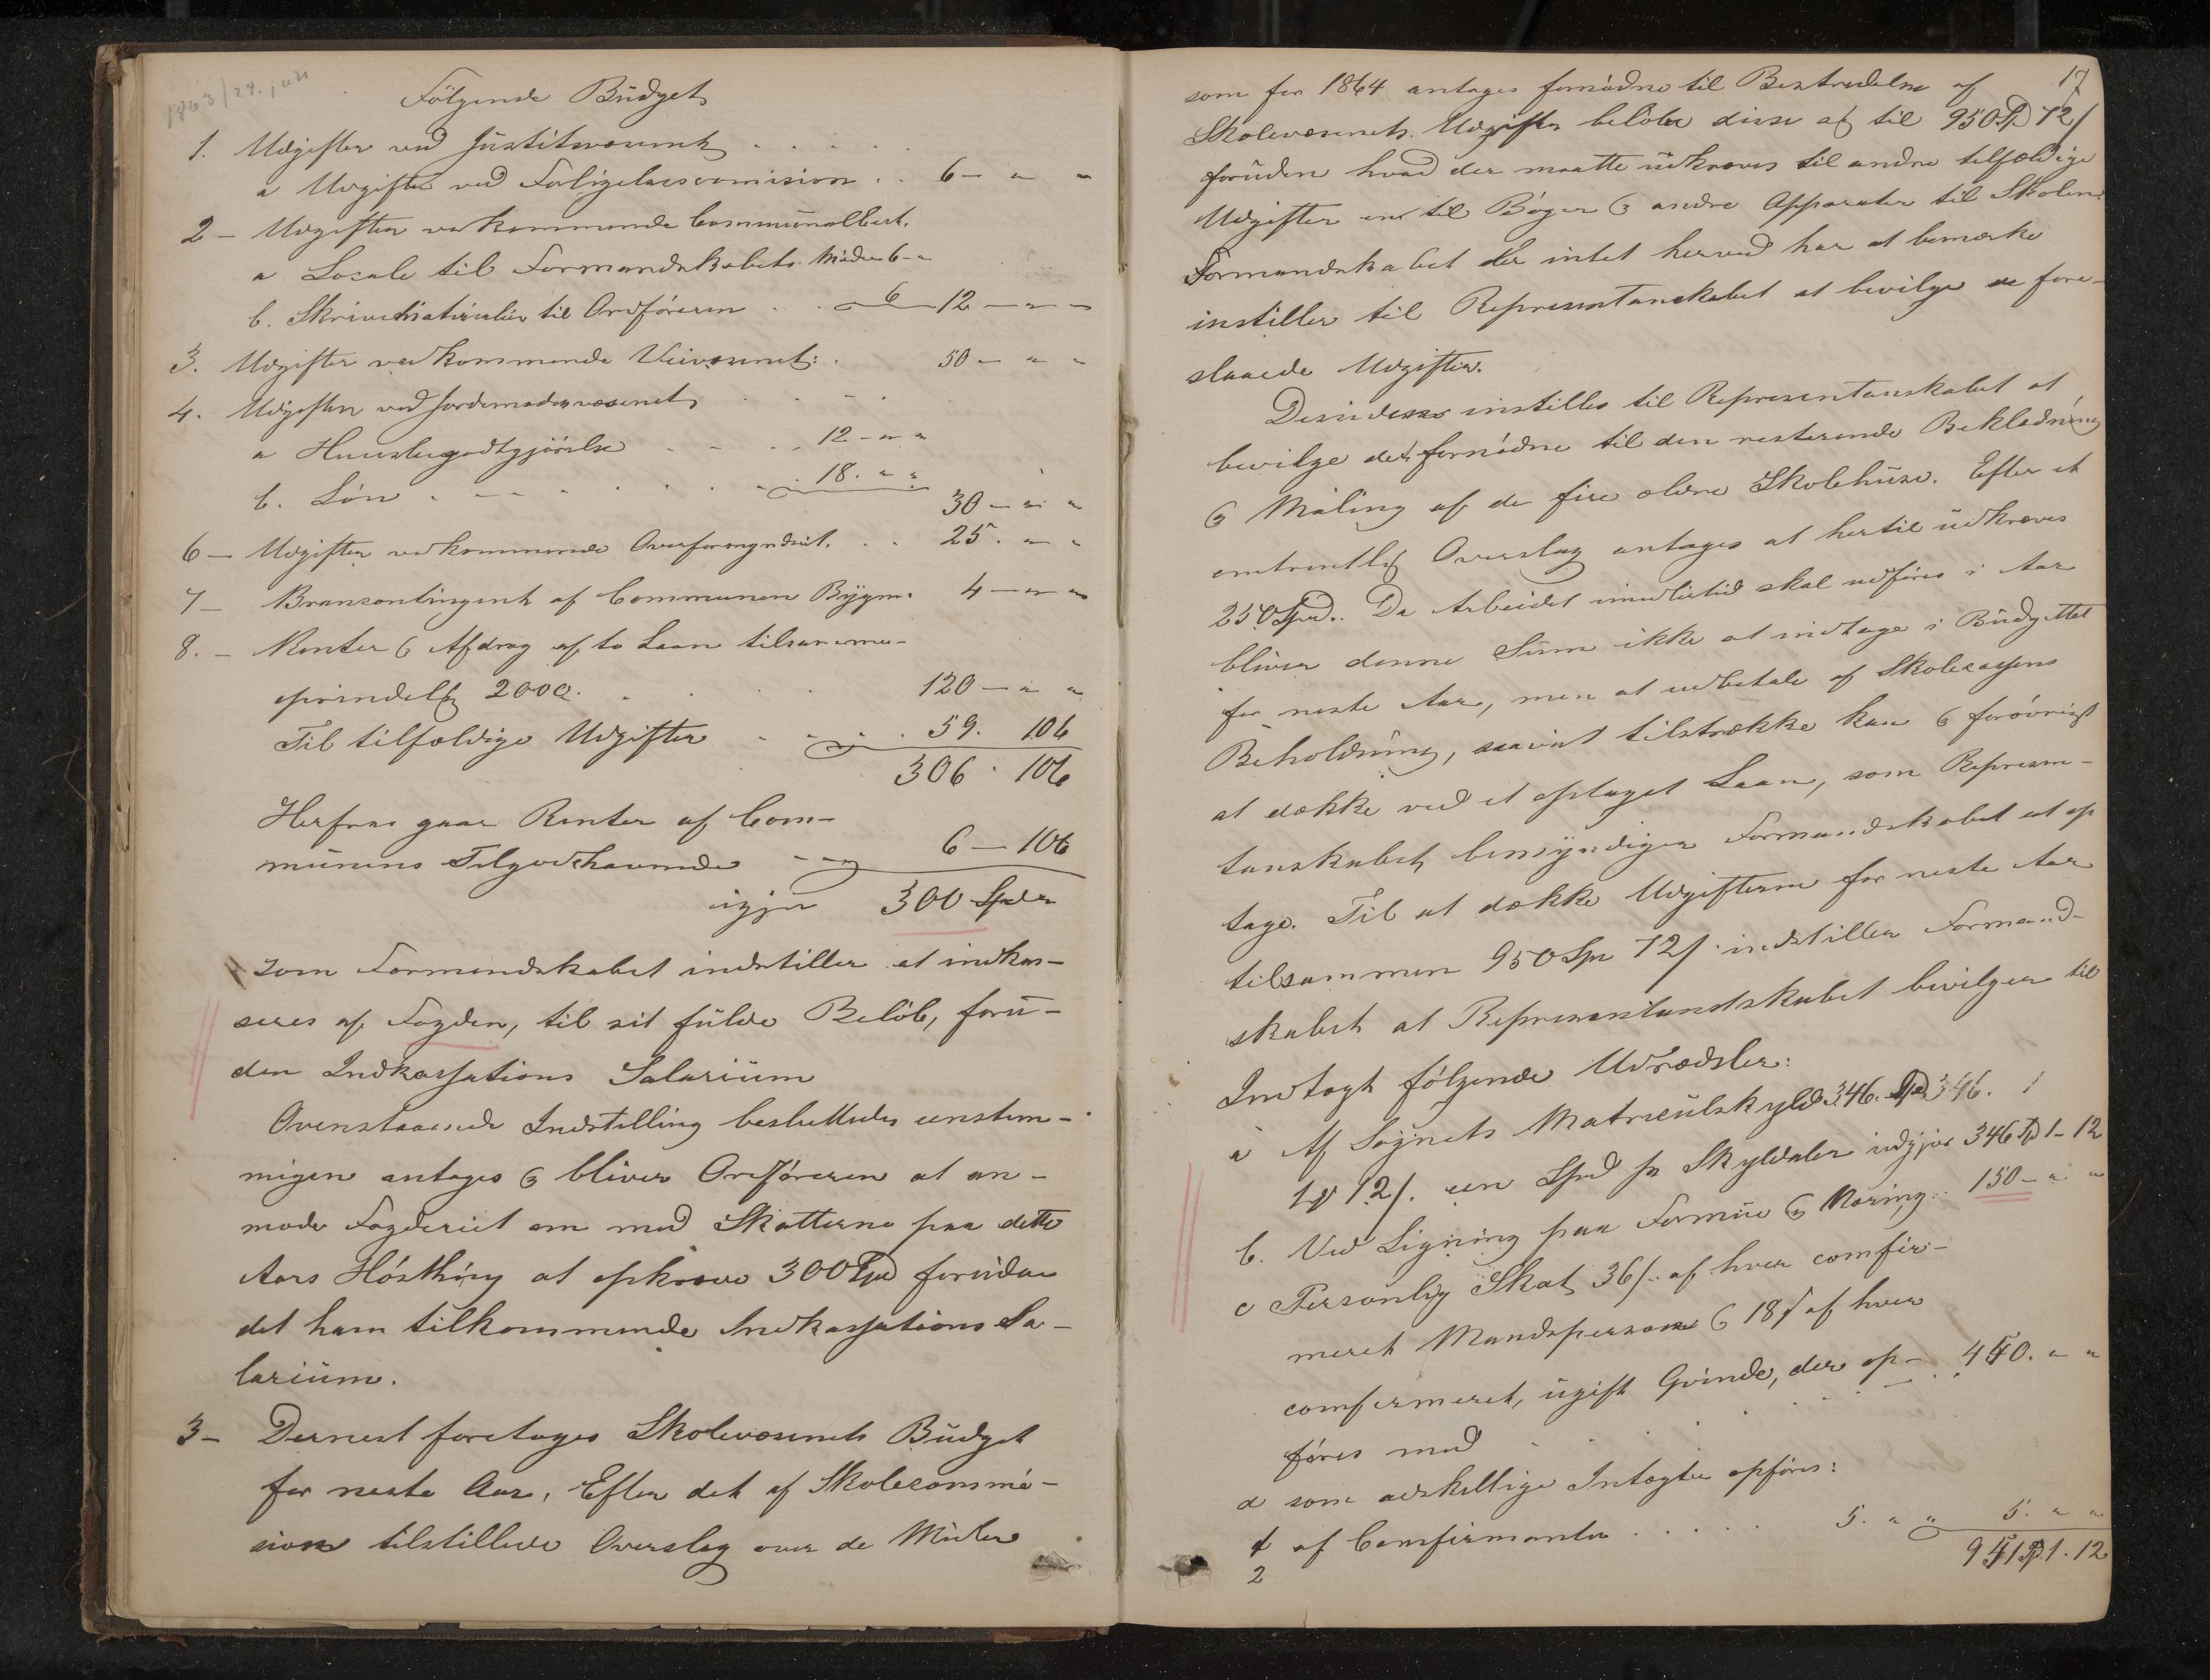 1863/29. juni
Følgende Büdget
1. Udgifter ved Jüstitsvæsenet . . . . .
a Udgifter ved Forligelsescomision . . 6 — " "
2 — Udgifter vedkommende Communalbest.
a Locale til Formandskabets Møder 6 - "
b. Skrivematerialier til Ordføreren . . 6 12 — " "
3. Udgifter vedkommende Veivæsenet: . 50 — " "
4. Udgifter ved Jordemodervæsenet . . .
a Huusleiegodtgjörelse . . . 12 - " "
b. Lön . . . . . . . 18. " "
30 — " "
6 — Udgifter vedkommende Overformynderiet. . . 25. " "
7 — Brancontingent af Communen Bygn. 4 — " "
8. — Renter & Afdrag af to Laan tilsamme-
oprindelig 2000. . . . 120 — " "
Til tilfældige Udgifter . . . . 59. 106
306 · 106
Herfra gaar Renter af Com-
münens Tilgodehavende — 6 — 106
igjen 300 Spd "
som Formandskabet indstiller at indkas-
seres af Fogden, til sit fülde Belöb, forü-
den Indkassations Salariüm
Ovenstaaende Indstilling besluttedes eenstem-
migen antages & bliver Ordföreren at an-
mode Fogderiet om med Skatterne paa dette
Aars Hösthing at opkræve 300 Spd foruden
det ham tilkommende Indkassations Sa-
lariüm.
3 — Dernest foretages Skolevæsenets Büdget
for neste Aar. Efter det af Skolecommi-
sion tilstillede Overslag over de Midler
17
som for 1864 antages fornødne til Bestridelse af
Skolevæsenets Udgifter belöber disse sig til 950 Spd 72 s
foruden hvad der maatte üdkræves til andre tilfældige
Udgifter en til Böger & andre Apparater til Skolen.
Formandskabet der intet herved har at bemærke
instiller til Representanskabet at bevilge de fore-
slaaede Udgifter.
Desuden instilles til Representanskabet at
bevilge det fornødne til den resterende Beklædning
& Maling af de fire ældre Skolehüse. Efter et
omtrentlig Overslag antages at hertil üdkræves
250 Spd. Da Arbeidet imidlertid skal udføres i Aar
bliver denne Süm ikke at indtage i Büdgettet
for neste Aar, men at udbetale af Skolecassens
Beholdning, saavit tilstrække kan & forövrigt
at dække ved et optaget Laan, som Represen-
tanskabet bemyndiger Formandskabet at op
tage. Til at dække Udgifterne for neste Aar
tilsammen 950 Spd 72 s indstiller Formand-
skabet at Representantskabet bevilger til
Indtægt følgende Udredsler:
a Af Sognets Matriculskyld 346. Spd 346. 1
1 ort 12 s. een Spd pr Skyldaler udgjør 346 Spd 1 - 12
b. Ved Ligning paa Formüe & Næring . . 150 — " "
c Personlig Skat 36 s. af hver comfir-
meret Mandsperson & 18 s af hver
comfermeret, ügift Qvinde, der op- 450. " "
föres med . . . . . . .
d som adskillige Intægter opføres:
1 af Comfirmanter . . . . . 5. " " 5. " "
2 951 Spd. 1. 12